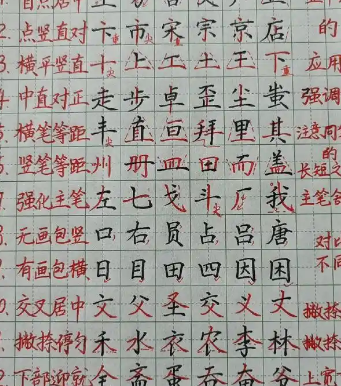 2. 点竖直对 卞 市 宋 宗 京 店 的
3. 横平竖直 十 上 工 土 王 下 应用
4 中直对正 走 步 卓 歪 尘 蚩 强调
5. 横笔等距 丰 直 亘 拜 里 其 注意同
6. 竖笔等距 州 册 皿 田 而 盖 的 长短
7 强化主笔 左 七 戈 斗 厂 我 主笔
8. 无画包竖 口 右 员 占 吕 唐 对比
9. 有画包横 日 目 田 四 因 困 不同
0. 交叉居中 文 父 圣 交 义 丈 撇捺
1. 撇捺停匀 禾 水 衣 农 李 林 撇捺
下部迎就 全 斋 蛋 奋